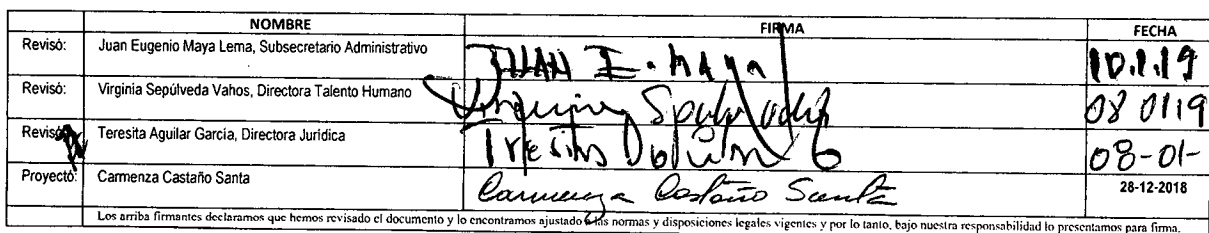 NOMBRE FIRMA FECHA
Revisó: Juan Eugenio Maya Lema, Subsecretario Administrativo JUAN E. MAYA 10.1.19
Revisó: Virginia Sepúlveda Vahos, Directora Talento Humano Virginia Sepúlveda 08 01 19
Revisó: Teresita Aguilar García, Directora Jurídica Teresita Aguilar G 08-01-
Proyectó: Carmenza Castaño Santa Carmenza Castaño Santa 28-12-2018
Los arriba firmantes declaramos que hemos revisado el documento y lo encontramos ajustado a las normas y disposiciones legales vigentes y por lo tanto, bajo nuestra responsabilidad lo presentamos para firma.